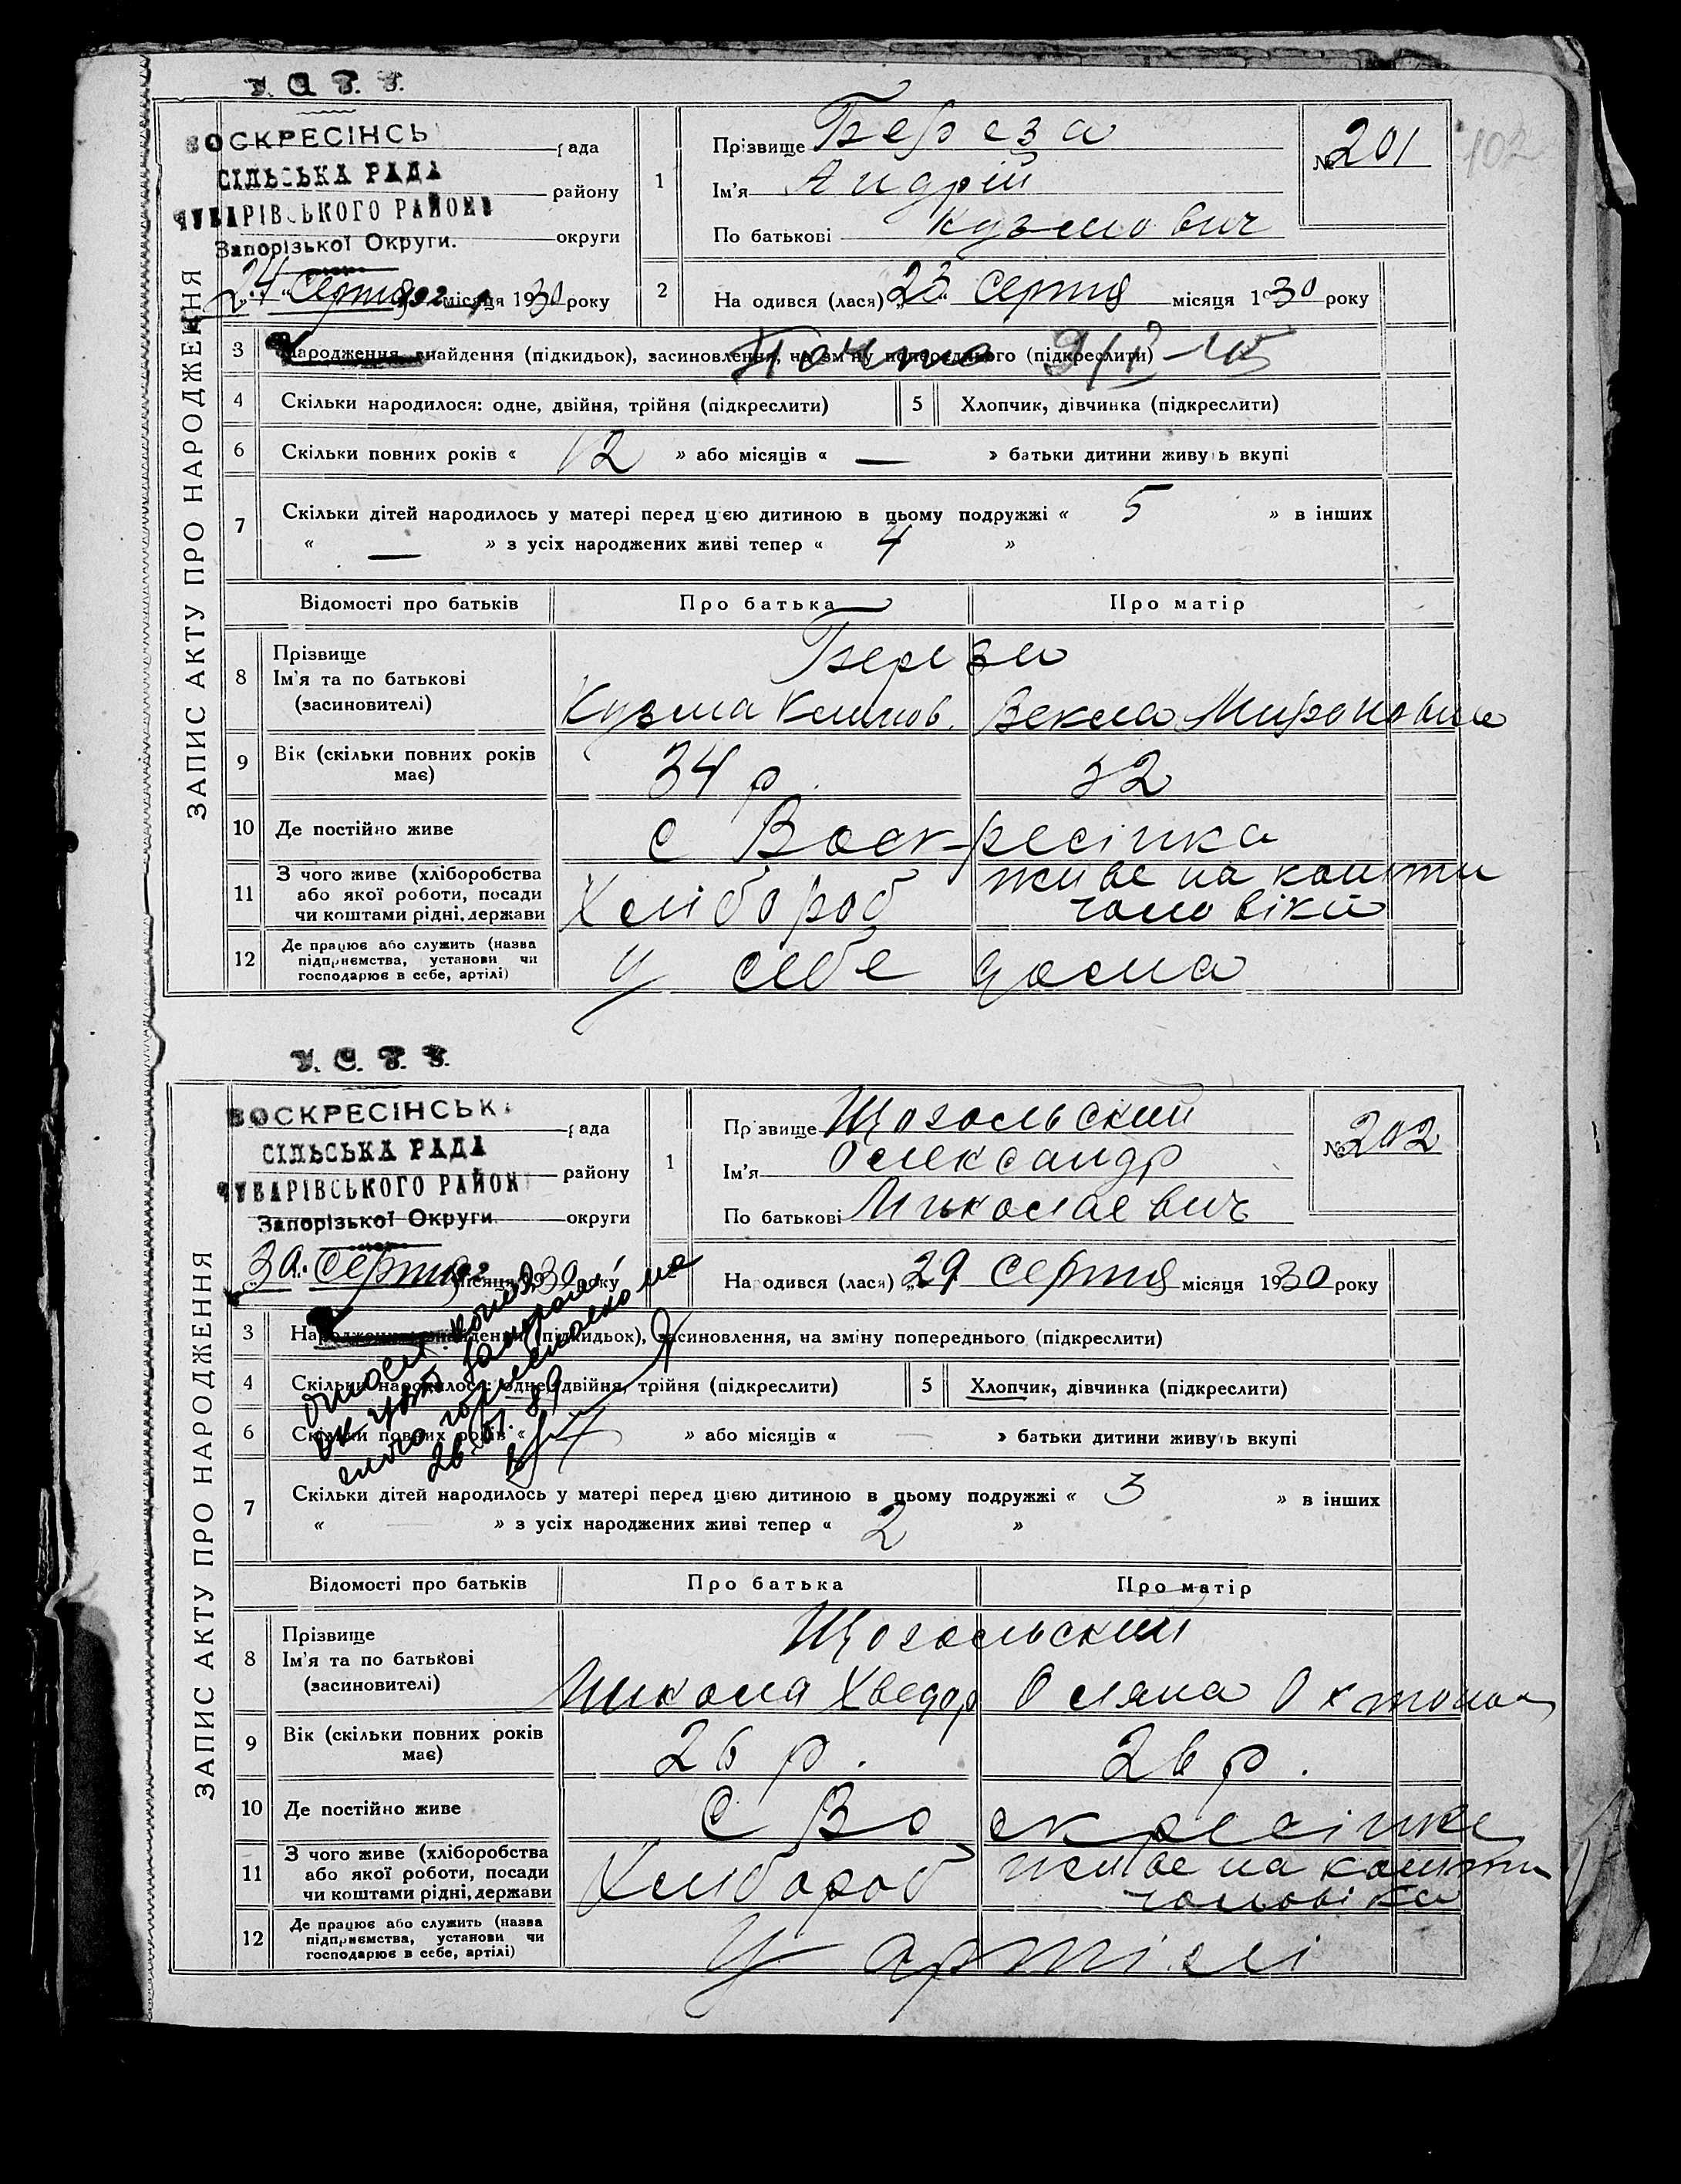 У. С. Р. Р.
ВОСКРЕСІНСЬ рада
СІЛЬСЬКА РАДА району
ЧУБАРІВСЬКОГО РАЙОНУ
Запорізької Округи. округи
24 Серпня місяця 1930 року
ЗАПИС АКТУ ПРО НАРОДЖЕННЯ
1 Прізвище Береза
Ім'я Андрій
По батькові Кузьмович
№ 201
102
2 Народився (лася) „23" Серпня місяця 1930 року
3 Народження, знайдення (підкидьок), засиновлення, на зміну попереднього (підкреслити)
4 Скільки народилося: одне, двійня, трійня (підкреслити) 5 Хлопчик, дівчинка (підкреслити)
6 Скільки повних років « 12 » або місяців « — » батьки дитини живуть вкупі
7 Скільки дітей народилось у матері перед цією дитиною в цьому подружжі « 5 » в інших
« — » з усіх народжених живі тепер « 4 »
Відомості про батьків Про батька Про матір
8 Прізвище Береза
Ім'я та по батькові
(засиновителі) Кузьма Климов. Векла Миронівна
9 Вік (скільки повних років має) 34 р. 32
10 Де постійно живе с Воскресінка
11 З чого живе (хліборобства або якої роботи, посади чи коштами рідні, держави Хлібороб живе на кошти чоловіка
12 Де працює або служить (назва підприємства, установи чи господарює в себе, артілі) У себе дома
У. С. Р. Р.
ВОСКРЕСІНСЬК рада
СІЛЬСЬКА РАДА району
ЧУБАРІВСЬКОГО РАЙОН
Запорізької Округи округи
30 Серпня місяця 1930 року
ЗАПИС АКТУ ПРО НАРОДЖЕННЯ
1 Прізвище Щогольський
Ім'я Олександр
По батькові Миколаевич
№ 202
Народився (лася) „29 Серпня місяця 1930 року
3 Народження, знайдення (підкидьок), засиновлення, на зміну попереднього (підкреслити)
4 Скільки народилося: одне, двійня, трійня (підкреслити) 5 Хлопчик, дівчинка (підкреслити)
6 Скільки повних років « » або місяців « — » батьки дитини живуть вкупі
7 Скільки дітей народилось у матері перед цією дитиною в цьому подружжі « 3 » в інших
« — » з усіх народжених живі тепер « 2 »
Відомості про батьків Про батька Про матір
8 Прізвище Щогольський
Ім'я та по батькові
(засиновителі) Микола Хведор Оляна
9 Вік (скільки повних років має) 26 р. 26 р.
10 Де постійно живе С Воскресінке
11 З чого живе (хліборобства або якої роботи, посади чи коштами рідні, держави Хлібороб живе на кошти чоловіка
12 Де працює або служить (назва підприємства, установи чи господарює в себе, артілі) У артілі